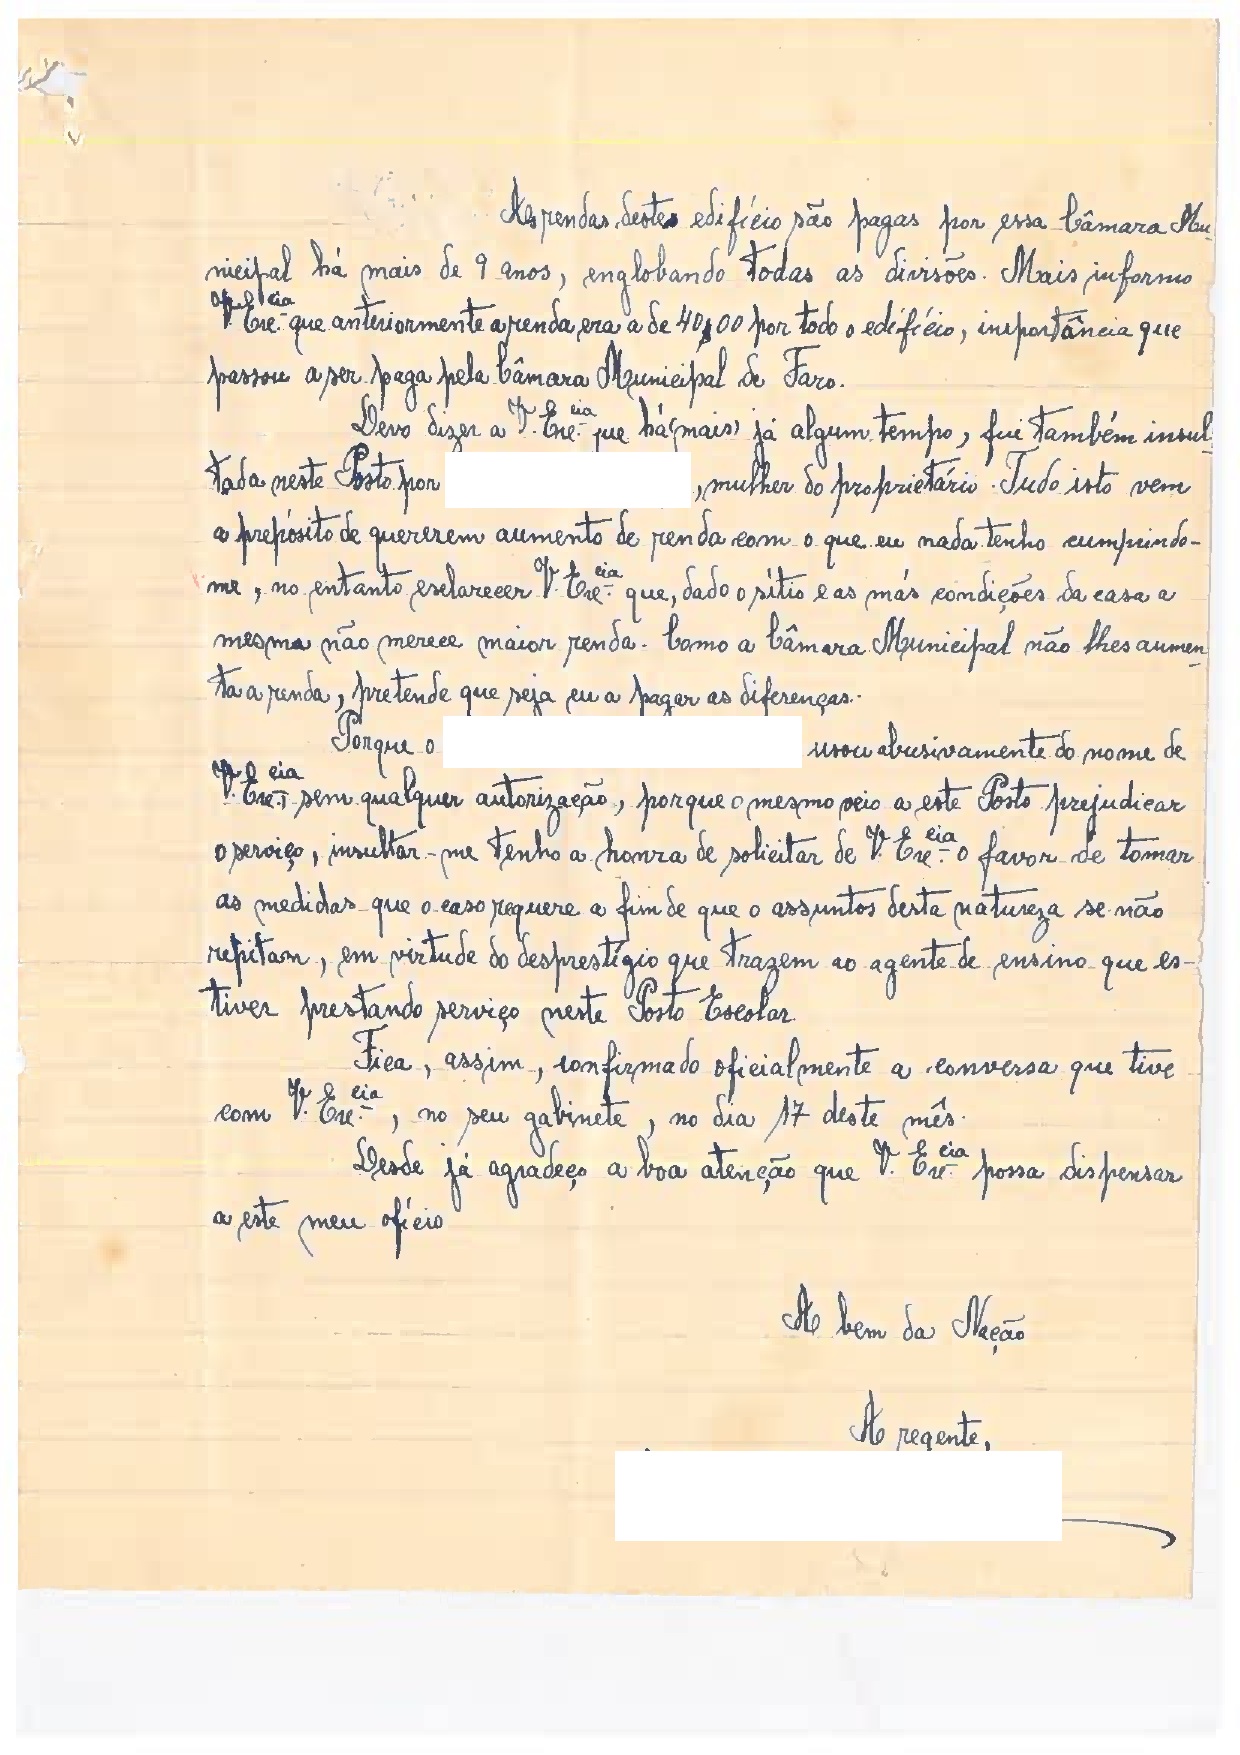 As rendas deste edifício são pagas por essa Câmara Mu-
nicipal há mais de 9 anos, englobando todas as divisões. Mais informo
V. Exe.cia que anteriormente a renda era a de 40$00 por todo o edifício, importância que
passou a ser paga pela Câmara Municipal de Faro.
Devo dizer a V. Exe.cia que há (mais) já algum tempo, fui também insul-
tada neste Posto por , mulher do proprietário. Tudo isto vem
a prepósito de quererem aumento de renda com o que eu nada tenho cumprindo-
me, no entanto esclarecer V. Exe.cia que, dado o sítio e as más condições da casa a
mesma não merece maior renda. Como a Câmara Municipal não lhes aumen-
ta a renda, pretende que seja eu a pagar as diferenças.
Porque o usou abusivamente do nome de
V. Exe.cia sem qualquer autorização, porque o mesmo veio a este Posto prejudicar
o serviço, insultar-me tenho a honra de solicitar de V. Exe.cia o favor de tomar
as medidas que o caso requere a fim de que o assuntos desta natureza se não
repitam, em virtude do desprestígio que trazem ao agente de ensino que es-
tiver prestando serviço neste Posto Escolar.
Fica, assim, confirmado oficialmente a conversa que tive
com V. Exe.cia, no seu gabinete, no dia 17 deste mês.
Desde já agradeço a boa atenção que V. Exe.cia possa dispensar
a este meu ofício
A bem da Nação
A regente,